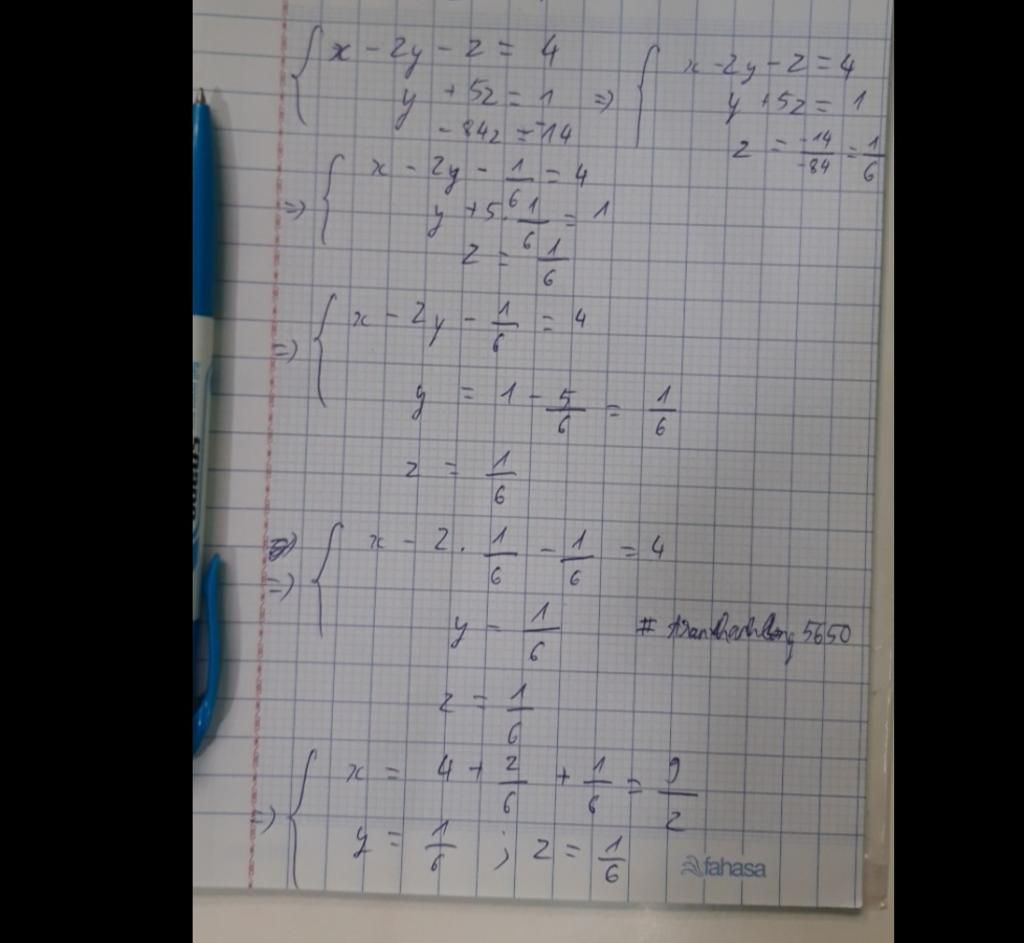 x - 2y - z = 4
y + 5z = 1
- 84z = -14
=>
x - 2y - z = 4
y + 5z = 1
z = -14/-84 = 1/6
=>
x - 2y - 1/6 = 4
y + 5 . 1/6 = 1
z = 1/6
=>
x - 2y - 1/6 = 4
y = 1 - 5/6 = 1/6
z = 1/6
=>
x - 2 . 1/6 - 1/6 = 4
y = 1/6
z = 1/6
=>
x = 4 + 2/6 + 1/6 = 9/2
y = 1/6 ; z = 1/6
fahasa